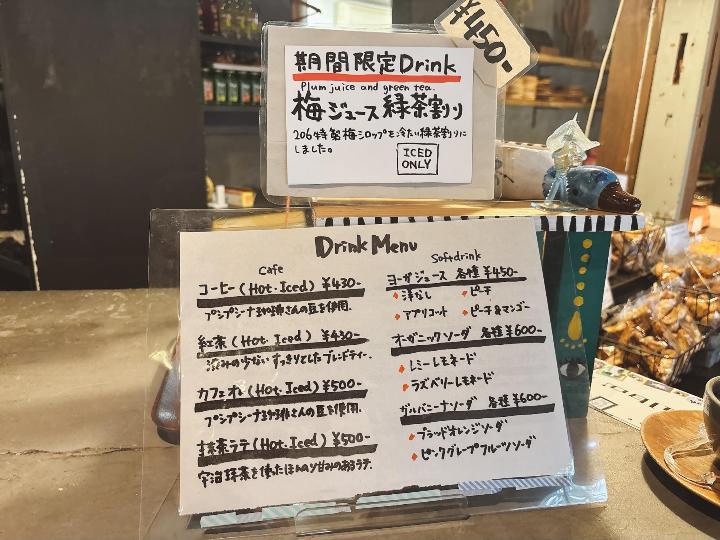 ¥450-
期間限定Drink
Plum juice and green tea.
梅ジュース緑茶割り
206特製梅シロップを冷たい緑茶割りに
しました。
ICED
ONLY
Drink Menu
Cafe
コーヒー(Hot・Iced) ¥430-
紅茶(Hot Iced) ¥430-
渋みの少ない すっきりとしたブレンドティー.
カフェオレ(Hot・Iced) ¥500-
抹茶ラテ(Hot.Iced) ¥500-
宇治抹茶を使ったほんのり甘みのあるラテ.
Softdrink
ヨーガジュース 各種 ¥450-
洋なし
ピーチ
アプリコット
ピーチ&マンゴー
オーガニックソーダ 各種 ¥600-
レミーレモネード
ラズベリーレモネード
ガルバニーナソーダ 各種 ¥600-
ブラッドオレンジソーダ
ピンクグレープフルーツソーダ